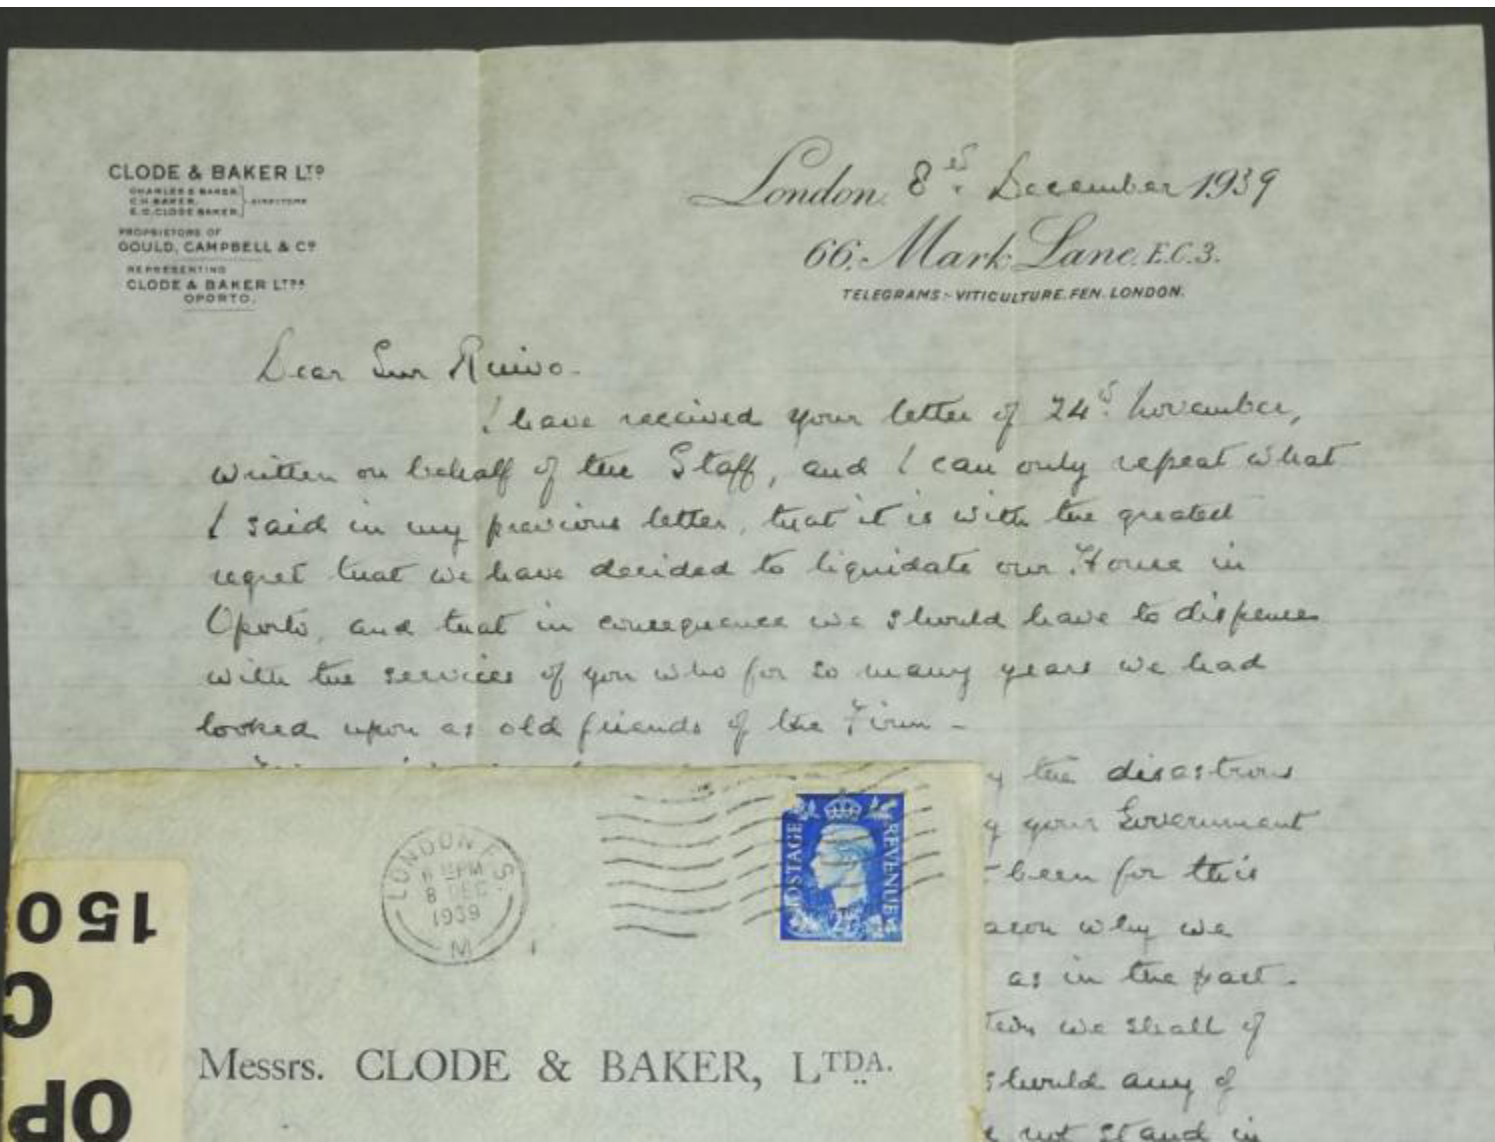 CLODE & BAKER LTD
CHARLES E BAKER.
C.H. BAKER.
E.O. CLODE BAKER.
DIRECTORS
PROPRIETORS OF
GOULD, CAMPBELL & Co
REPRESENTING
CLODE & BAKER LTDA
OPORTO.
London 8th December 1939
66, Mark Lane. E.C.3.
TELEGRAMS:- VITICULTURE. FEN. LONDON.
Dear Snr Ruivo -
I have received your letter of 24th November,
written on behalf of the Staff, and I can only repeat what
I said in my previous letter, that it is with the greatest
regret that we have decided to liquidate our House in
Oporto, and that in consequence we should have to dispense
with the services of you who for so many years we had
looked upon as old friends of the Firm -
the disastrous
your Government
been for this
why we
as in the past -
we shall of
should any of
not stand in
LONDON. F.S.
PM
8 DEC
1939
M
POSTAGE
REVENUE
150
C
OP
Messrs. CLODE & BAKER, LTDA.